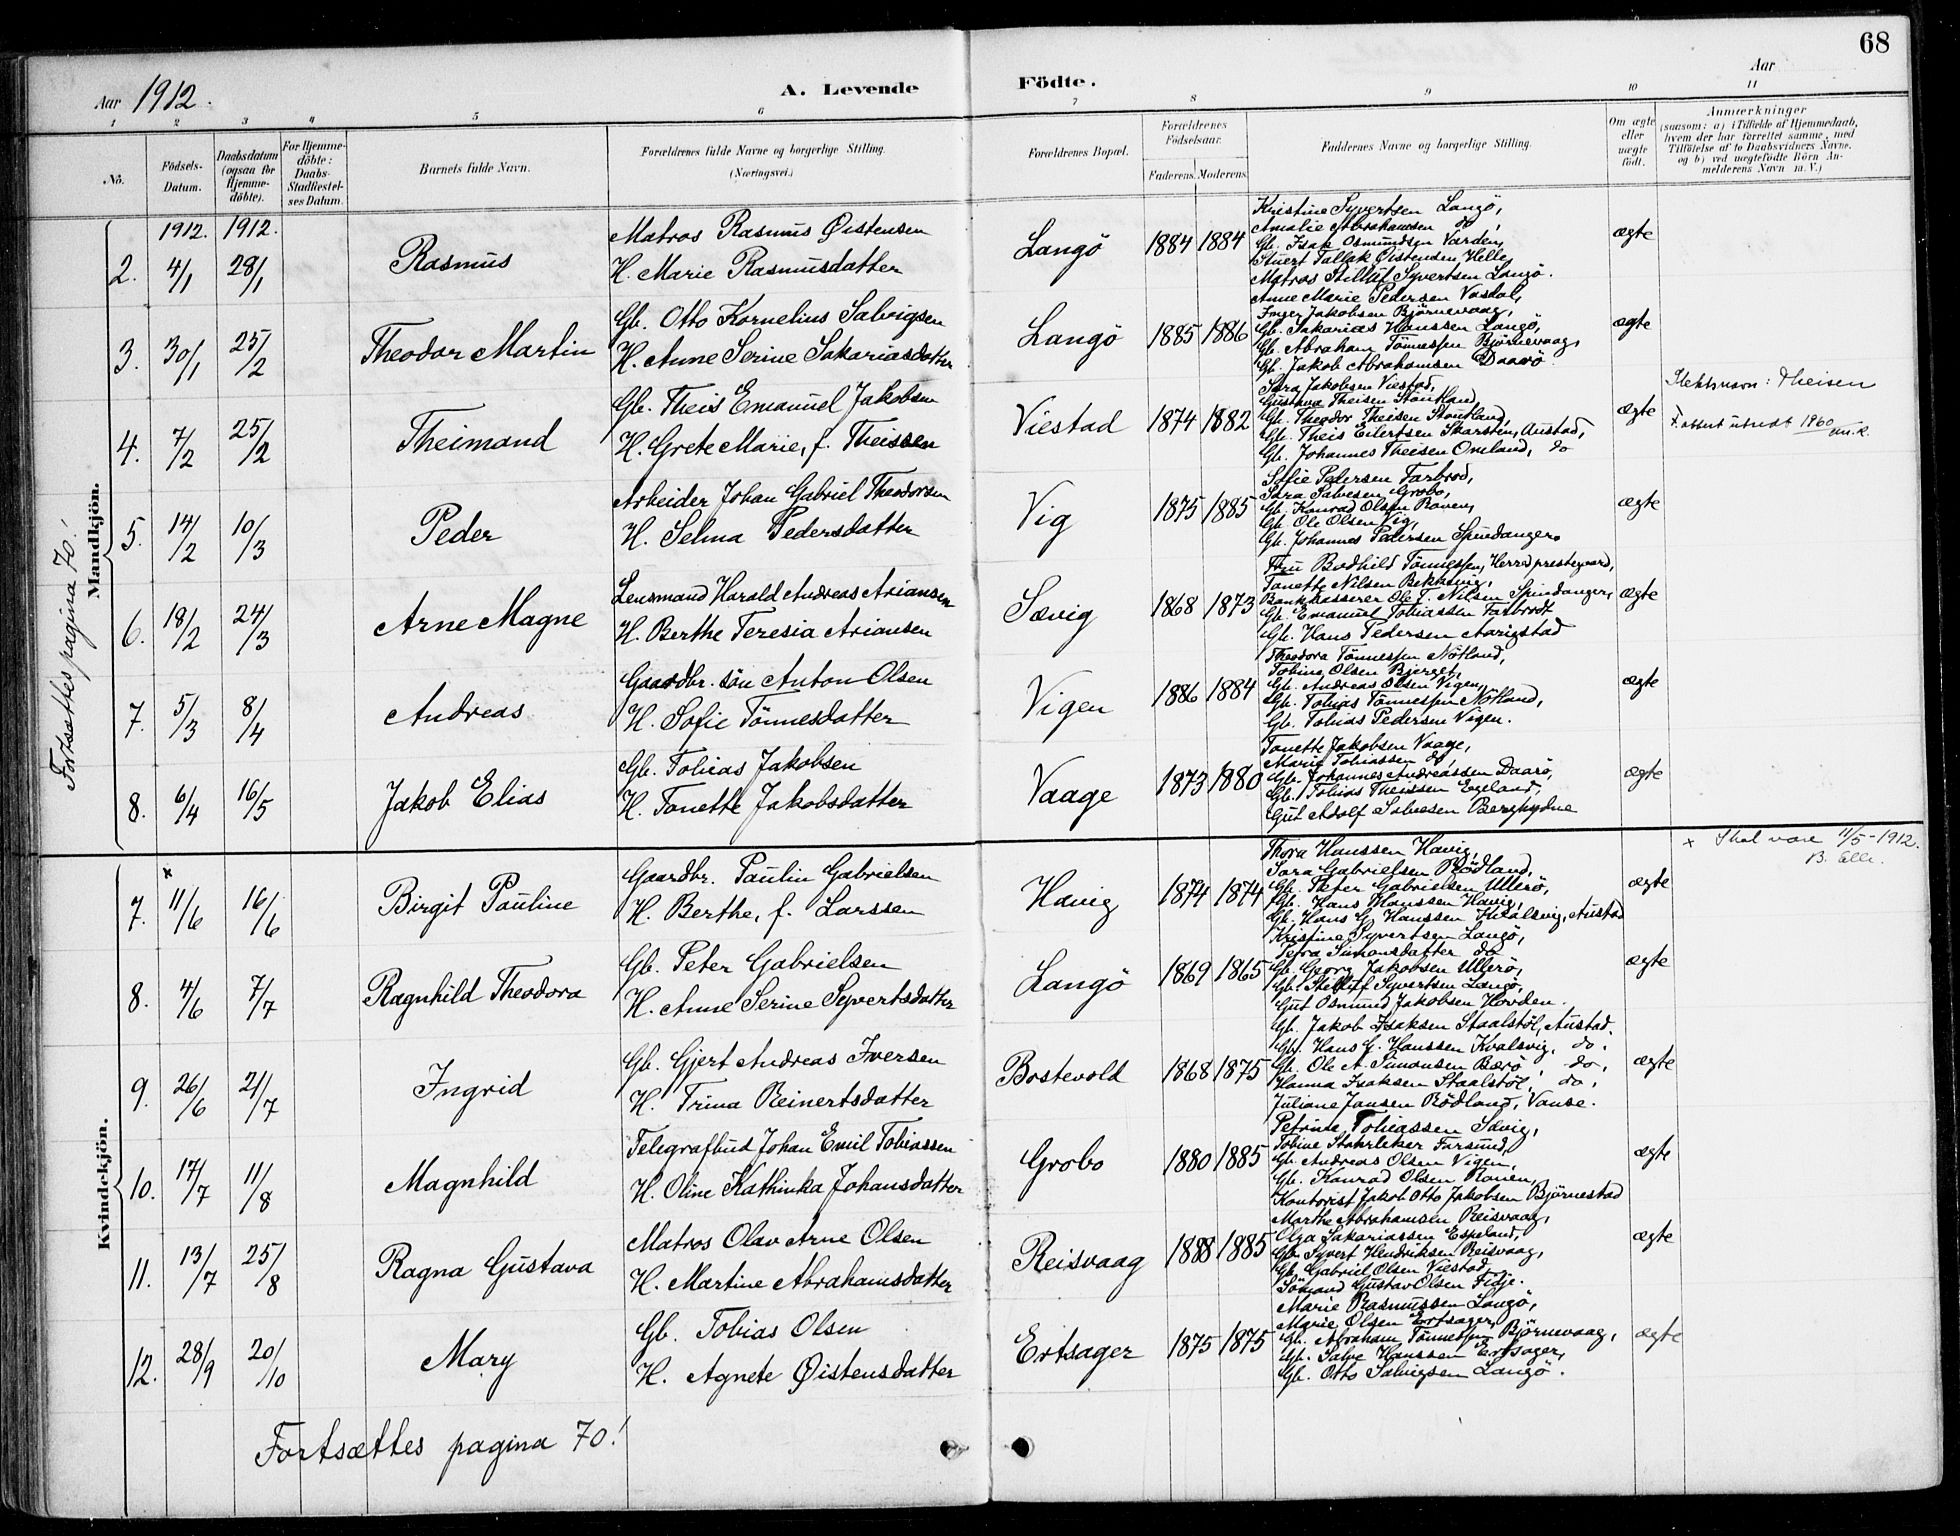 68
Aar 1912.
A. Levende Födte.
Aar
1 2 3 4 5 6 7 8 9 10 11
No.
Födsels-Datum.
Daabsdatum (ogsaa for Hjemmedöbte).
For Hjemmedöbte: Daabs-Stadfæstelses Datum.
Barnets fulde Navn.
Forældrenes fulde Navne og borgerlige Stilling. (Næringsvei.)
Forældrenes Bopæl.
Forældrenes Födselsaar.
Faderens. Moderens.
Faddernes Navne og borgerlige Stilling.
Om ægte eller uægte födt.
Anmærkninger
(saasom: a) i Tilfælde af Hjemmedaab, hvem der har forrettet samme, med Tilföielse af to Daabsvidners Navne, og b) ved uægtefödte Börn Anmelderens Navn m. V.)
Mandkjön.
Fortsættes pagina 70!
1912. 1912.
2. 4/1 28/1 Rasmus
Matros Rasmus Øistensen
H. Marie Rasmusdatter
Langö 1884 1884
Kristine Syvertsen Langö,
Amalie Abrahamsen do,
Gb. Isak Osmundsen Varden,
Stuert Tallak Øistensen Helle,
Matros Stilluf Syvertsen Langö.
ægte
3. 30/1 25/2 Theodor Martin
Gb. Otto Kornelius Salvigsen
H. Anne Serine Sakariasdatter
Langö 1885 1886
Anne Marie Pedersen Vasdal,
Inger Jakobsen Björnevaag,
Gb. Sakarias Hanssen Langö,
Gb. Abraham Tönnessen Björnevaag,
Gb. Jakob Abrahamsen Daarö
ægte
4. 7/2 25/2 Theimand
Gb. Theis Emanuel Jakobsen
H. Grete Marie, f. Theissen
Viestad 1874 1882
Sara Jakobsen Viestad,
Gustava Theisen Stöutland,
Gb. Theodor Theisen Stöutland,
Gb. Theis Eilertsen Skarsten, Austad,
Gb. Johannes Theisen Omland, do
ægte
Slektsnavn: Theisen
F.attest utstedt 1960
5. 14/2 10/3 Peder
Arbeider Johan Gabriel Theodorsen
H. Selma Pedersdatter
Vig 1875 1885
Sofie Pedersen Farbrod,
Sara Salvesen Grobo,
Gb. Konrad Olsen Roven,
Gb. Ole Olsen Vig,
Gb. Johannes Pedersen Spindanger.
ægte
6. 18/2 24/3 Arne Magne
Lensmand Harald Andreas Ariansen
H. Berthe Teresia Ariansen
Sævig 1868 1873
Fru Bodhild Tönnessen, Herredprestegaard,
Tonette Nilsen Bekkevig,
Bankkasserer Ole T. Nilsen Spindanger,
Gb. Emanuel Tobiassen Farbrodt
Gb. Hans Pedersen Aarigstad
ægte
7. 5/3 8/4 Andreas
Gaardbr. sön Anton Olsen
H. Sofie Tönnesdatter
Vigen 1886 1884
Theodora Tönnessen Nötland,
Tobine Olsen Bjerget,
Gb. Andreas Olsen Vigen,
Gb. Tobias Tönnessen Nötland,
Gb. Tobias Pedersen Vigen.
ægte
8. 6/4 16/5 Jakob Elias
Gb. Tobias Jakobsen
H. Tonette Jakobsdatter
Vaage 1873 1880
Tonette Jakobsen Vaage,
Marie Tobiassen do,
Gb. Johannes Andreassen Daarö,
Gb. Tobias Theissen Egeland,
Gut Adolf Salvesen Bergskydne
ægte
Kvindekjön.
7. × 11/6 16/6 Birgit Pauline
Gaardbr. Paulin Gabrielsen
H. Berthe, f. Larssen
Havig 1874 1874
Thora Hanssen Havig,
Sara Gabrielsen Rödland,
Gb. Peter Gabrielsen Ullerö,
Gb. Hans Hanssen Havig,
Gb. Hans G. Hanssen Kvalsvig, Austad
ægte
× Skal være 11/5-1912.
8. 4/6 7/7 Ragnhild Theodora
Gb. Peter Gabrielsen
H. Anne Serine Syvertsdatter
Langö 1869 1865
Kristine Syvertsen Langö,
Petra Simonsdatter do
Gb. Georg Jakobsen Ullerö,
Gb. Stilluf Syvertsen Langö,
Gut Osmund Jakobsen Hovden.
ægte
9. 26/6 21/7 Ingrid
Gb. Gjert Andreas Iversen
H. Trina Reinertsdatter
Bostevold 1868 1875
Gb. Jakob Isaksen Staalstöl, Austad.
Gb. Hans G. Hanssen Kvalsvig, do.
Gb. Ole A. Simonsen Bærö, do,
Hanna Isaksen Staalstöl, do,
Juliane Jansen Rödland, Vanse.
ægte
10. 17/7 11/8 Magnhild
Telegrafbud Johan Emil Tobiassen
H. Oline Kathinka Johansdatter
Grobo 1880 1885
Petrine Tobiassen Sævig,
Tobine Starleker Farsund,
Gb. Andreas Olsen Vigen,
Gb. Konrad Olsen Roven,
Kontorist Jakob Otto Jakobsen Björnestad
ægte
11. 13/7 25/8 Ragna Gustava
Matros Olav Arne Olsen
H. Martine Abrahamsdatter
Reisvaag 1888 1885
Marthe Abrahamsen Reisvaag,
Olga Sakariassen Espeland,
Gb. Syvert Hendriksen Reisvaag,
Gb. Gabriel Olsen Viestad,
Sömand Gustav Olsen Fidje.
ægte
12. 28/9 20/10 Mary
Gb. Tobias Olsen
H. Agnete Øistensdatter
Ertsager 1875 1875
Marie Rasmussen Langö,
Marie Olsen Ertsager,
Gb. Abraham Tönnessen Björnevaag,
Gb. Salve Hanssen Ertsager,
Gb. Otto Salvigsen Langö.
ægte
Fortsættes pagina 70!